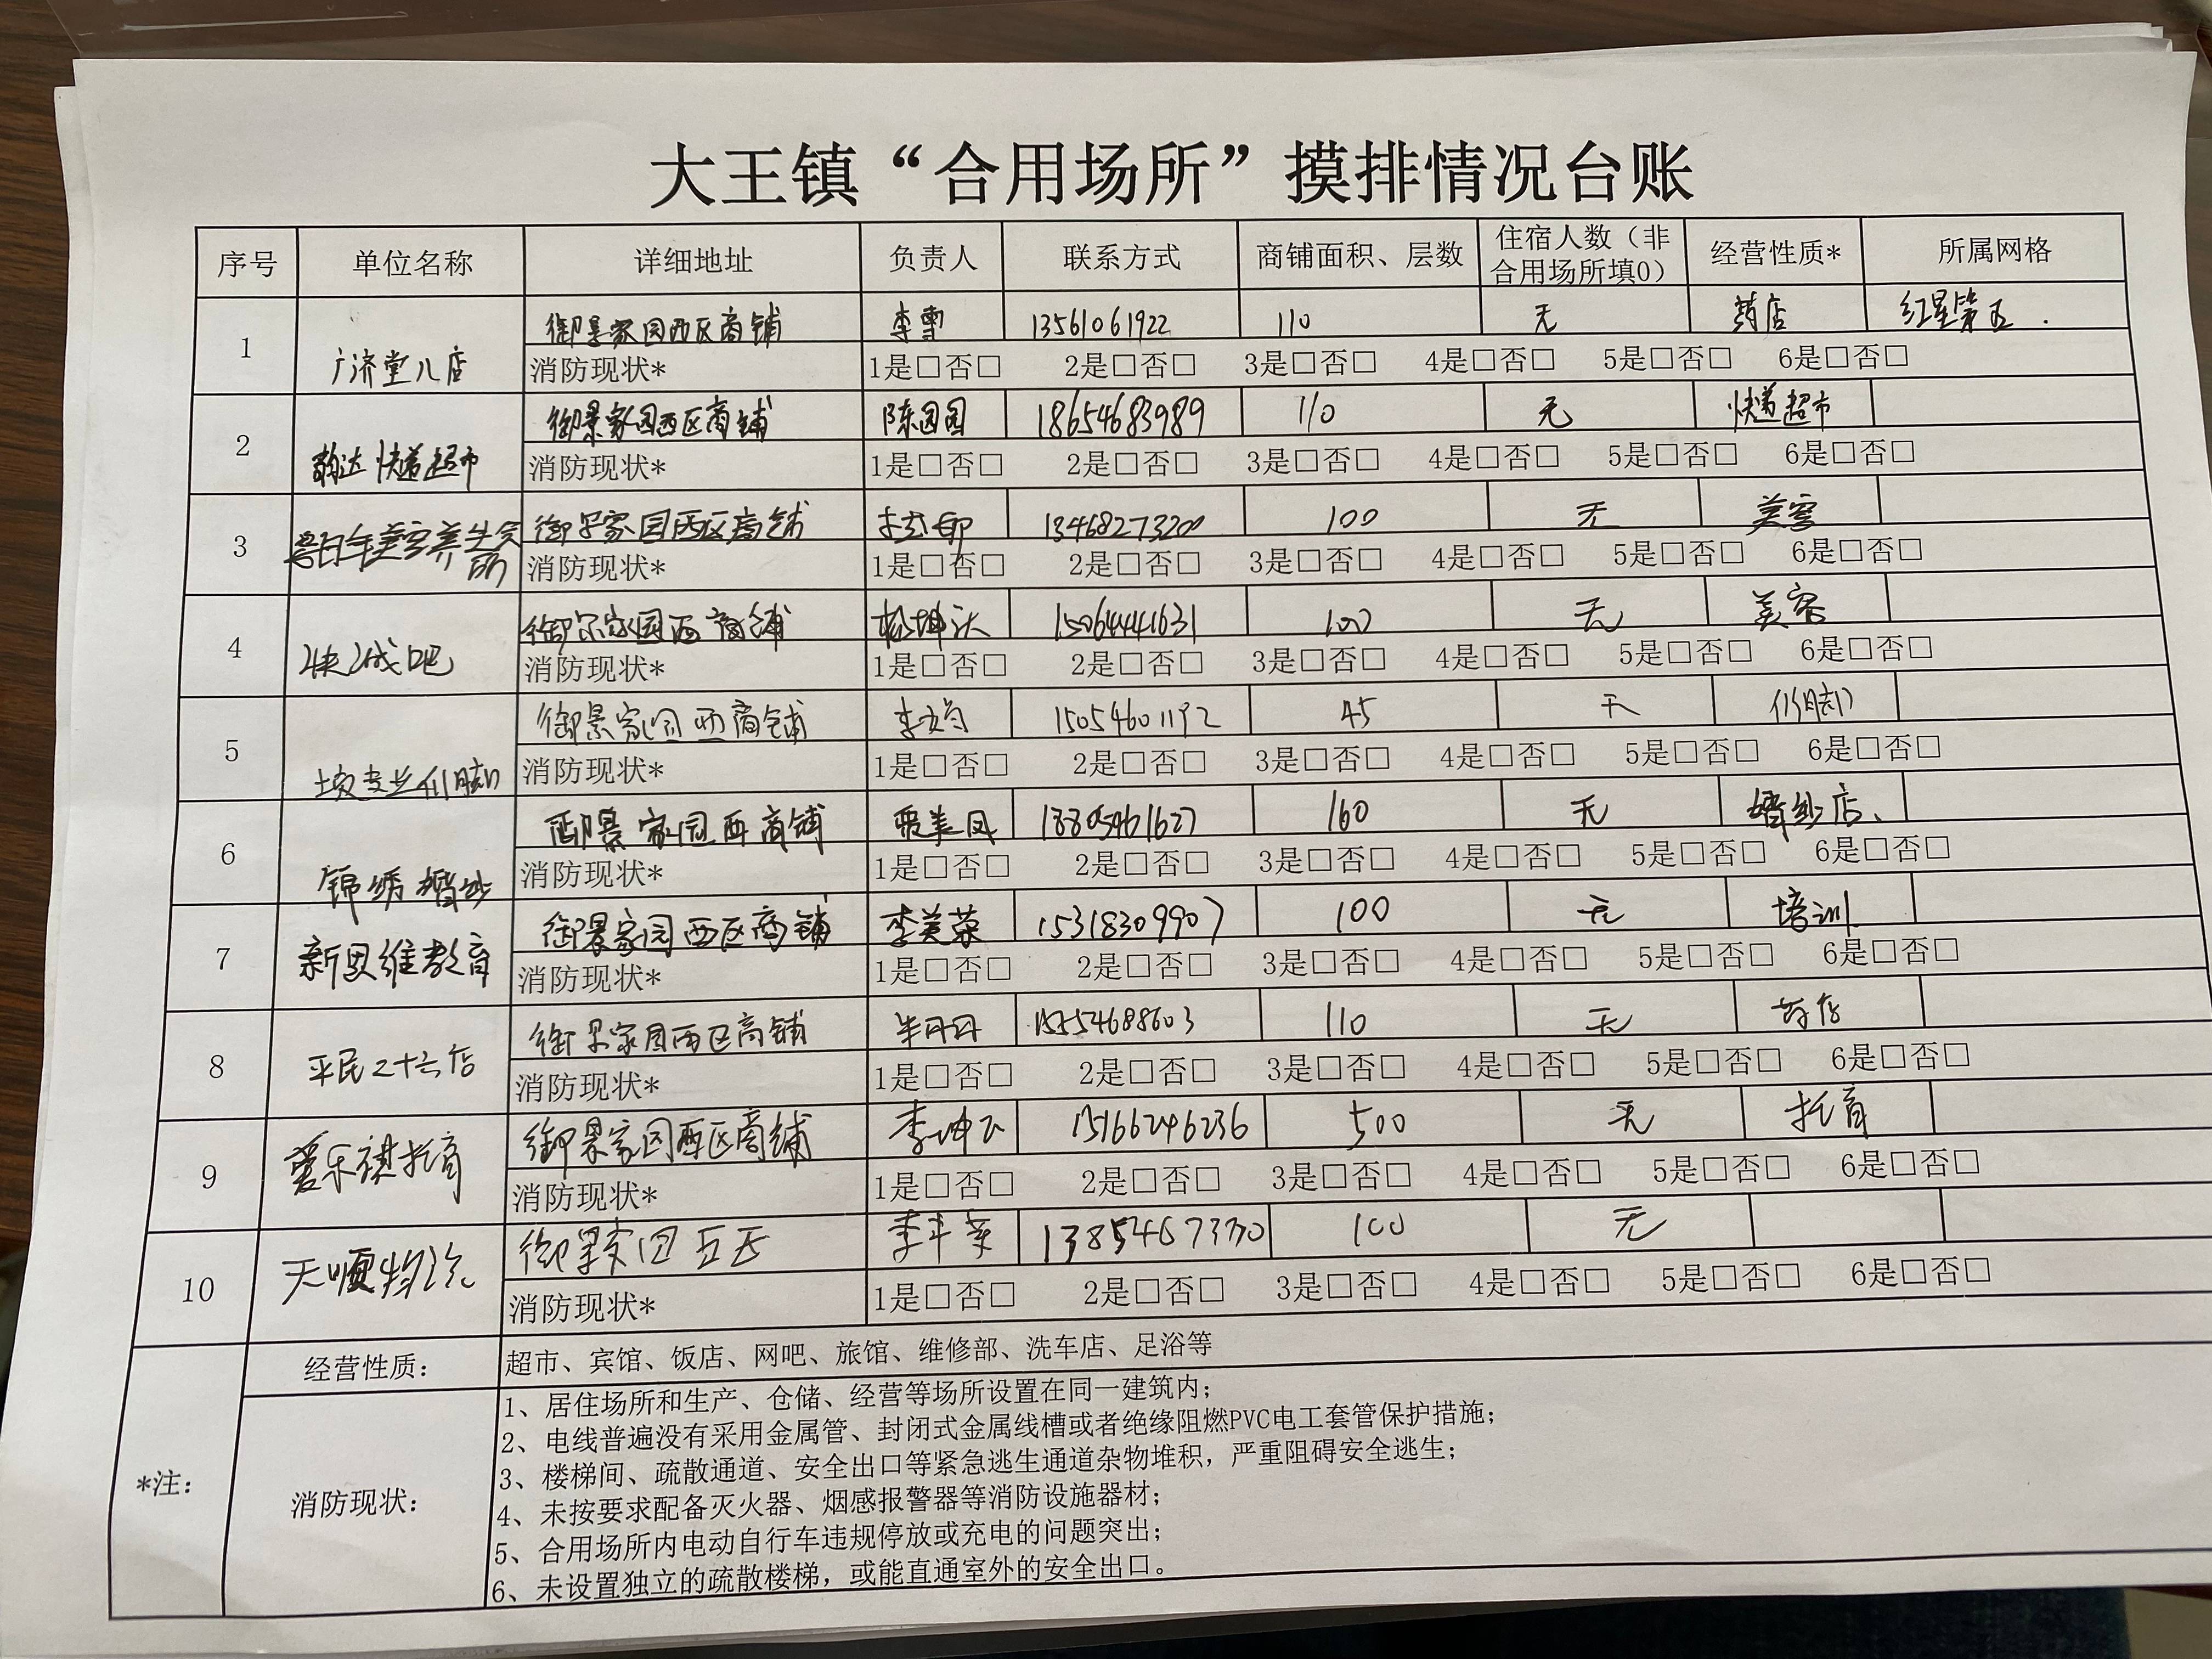 大王镇“合用场所”摸排情况台账
序号 单位名称 详细地址 负责人 联系方式 商铺面积、层数 住宿人数（非合用场所填0） 经营性质* 所属网格
1 广济堂八店 御景家园西区商铺 李雪 13561061922 110 无 药店 红星第五
消防现状* 1是□否□ 2是□否□ 3是□否□ 4是□否□ 5是□否□ 6是□否□
2 韵达快递超市 御景家园西区商铺 陈园园 18654683989 110 无 快递超市
消防现状* 1是□否□ 2是□否□ 3是□否□ 4是□否□ 5是□否□ 6是□否□
3 百年美容养生会所 御景家园西区商铺 13468273200 100 无 美容
消防现状* 1是□否□ 2是□否□ 3是□否□ 4是□否□ 5是□否□ 6是□否□
4 御景家园西商铺 15064441631 100 无 美容
消防现状* 1是□否□ 2是□否□ 3是□否□ 4是□否□ 5是□否□ 6是□否□
5 御景家园西商铺 15054601192 45 无 修脚
消防现状* 1是□否□ 2是□否□ 3是□否□ 4是□否□ 5是□否□ 6是□否□
6 锦绣婚纱 御景家园西商铺 18805461627 160 无 婚纱店、
消防现状* 1是□否□ 2是□否□ 3是□否□ 4是□否□ 5是□否□ 6是□否□
7 新思维教育 御景家园西区商铺 李美荣 15318309907 100 无 培训
消防现状* 1是□否□ 2是□否□ 3是□否□ 4是□否□ 5是□否□ 6是□否□
8 平民二十六店 御景家园西区商铺 15554688603 110 无 药店
消防现状* 1是□否□ 2是□否□ 3是□否□ 4是□否□ 5是□否□ 6是□否□
9 爱乐祺托育 御景家园西区商铺 15166246236 500 无 托育
消防现状* 1是□否□ 2是□否□ 3是□否□ 4是□否□ 5是□否□ 6是□否□
10 天顺物流 御景家园 100 无
消防现状* 1是□否□ 2是□否□ 3是□否□ 4是□否□ 5是□否□ 6是□否□
*注：
经营性质： 超市、宾馆、饭店、网吧、旅馆、维修部、洗车店、足浴等
消防现状：
1、居住场所和生产、仓储、经营等场所设置在同一建筑内；
2、电线普遍没有采用金属管、封闭式金属线槽或者绝缘阻燃PVC电工套管保护措施；
3、楼梯间、疏散通道、安全出口等紧急逃生通道杂物堆积，严重阻碍安全逃生；
4、未按要求配备灭火器、烟感报警器等消防设施器材；
5、合用场所内电动自行车违规停放或充电的问题突出；
6、未设置独立的疏散楼梯，或能直通室外的安全出口。